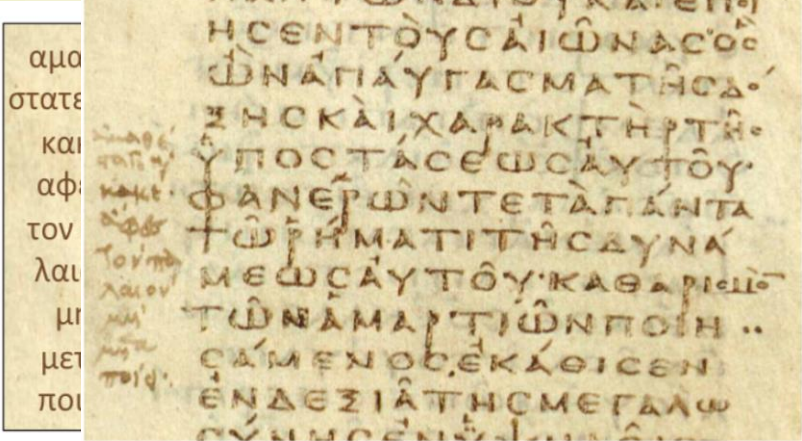 αμα
στατε
κακ
αφε
τον
λαι
μη
μετ
ποι
ἀμαθέ
στατε
κακε
ἄφες
τὸν πα
λαιον
μὴ
μετα
ποίει
ΗϹΕΝΤΟῪϹΑἸΩ͂ΝΑϹὋϹ
ὬΝἈΠΑΎΓΑϹΜΑΤΗ͂ϹΔΌ
ΞΗϹΚΑῚΧΑΡΑΚΤῊΡΤΗ͂Ϲ
ὙΠΟϹΤΆϹΕΩϹΑὙΤΟΥ͂·
ΦΑΝΕΡΩ͂ΝΤΕΤᾺΠΆΝΤΑ
ΤΩ͂ΡΉΜΑΤΙΤΗ͂ϹΔΥΝΆ
ΜΕΩϹΑὙΤΟΥ͂·ΚΑΘΑΡΙϹΜῸ
ΤΩ͂ΝἉΜΑΡΤΙΩ͂ΝΠΟΙΗ
ϹΆΜΕΝΟϹἘΚΆΘΙϹΕΝ
ἘΝΔΕΞΙΑ͂ΤΗϹΜΕΓΑΛΩ